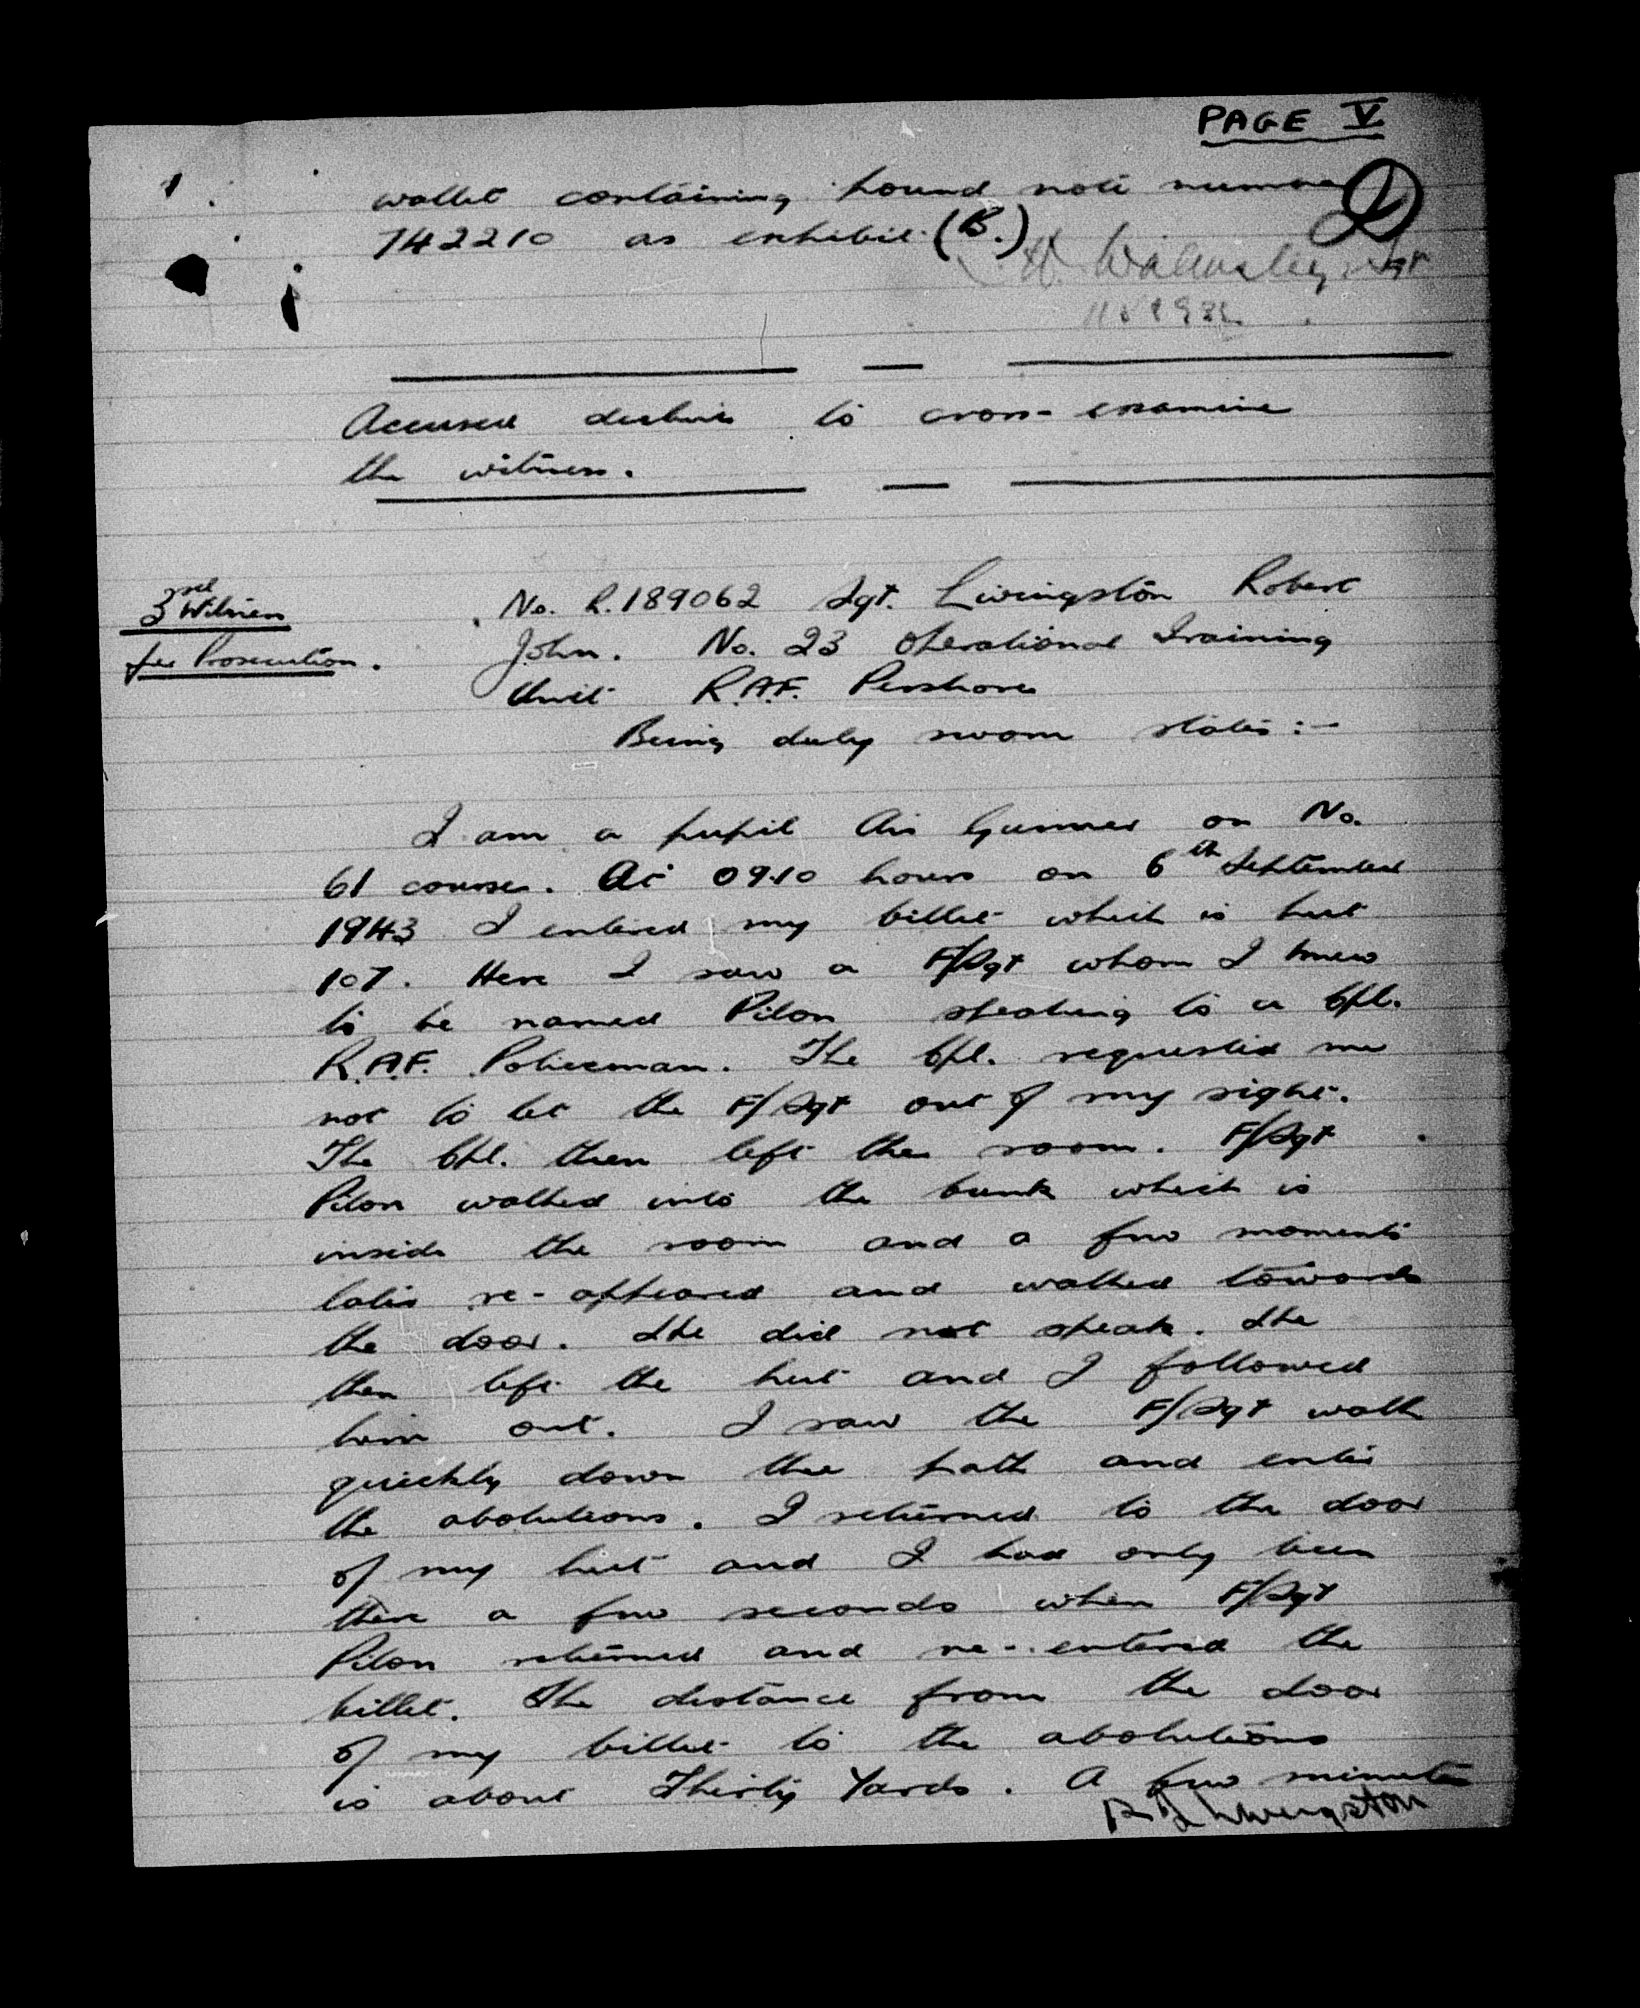 PAGE V
wallet containing pound note number
742210 as exhibit (B.)
H. Walmsley Sgt
Accused declines to cross-examine
the witness.
3rd Witness
for Prosecution.
No. R.189062 Sgt. Livingston Robert
John. No. 23 Operational Training
Unit R.A.F. Pershore
Being duly sworn states:-
I am a pupil Air Gunner on No.
61 course. At 0910 hours on 6th September
1943 I entered my billet which is hut
107. Here I saw a F/Sgt whom I knew
to be named Pilon speaking to a Cpl.
R.A.F. Policeman. The Cpl. requested me
not to let the F/Sgt out of my sight.
The Cpl. then left the room. F/Sgt
Pilon walked into the bunk which is
inside the room and a few moments
later re-appeared and walked towards
the door. He did not speak. He
then left the hut and I followed
him out. I saw the F/Sgt walk
quickly down the path and enter
the abolutions. I returned to the door
of my hut and I had only been
there a few seconds when F/Sgt
Pilon returned and re-entered the
billet. The distance from the door
of my billet to the abolutions
is about Thirty Yards. A few minutes
R J Livingston